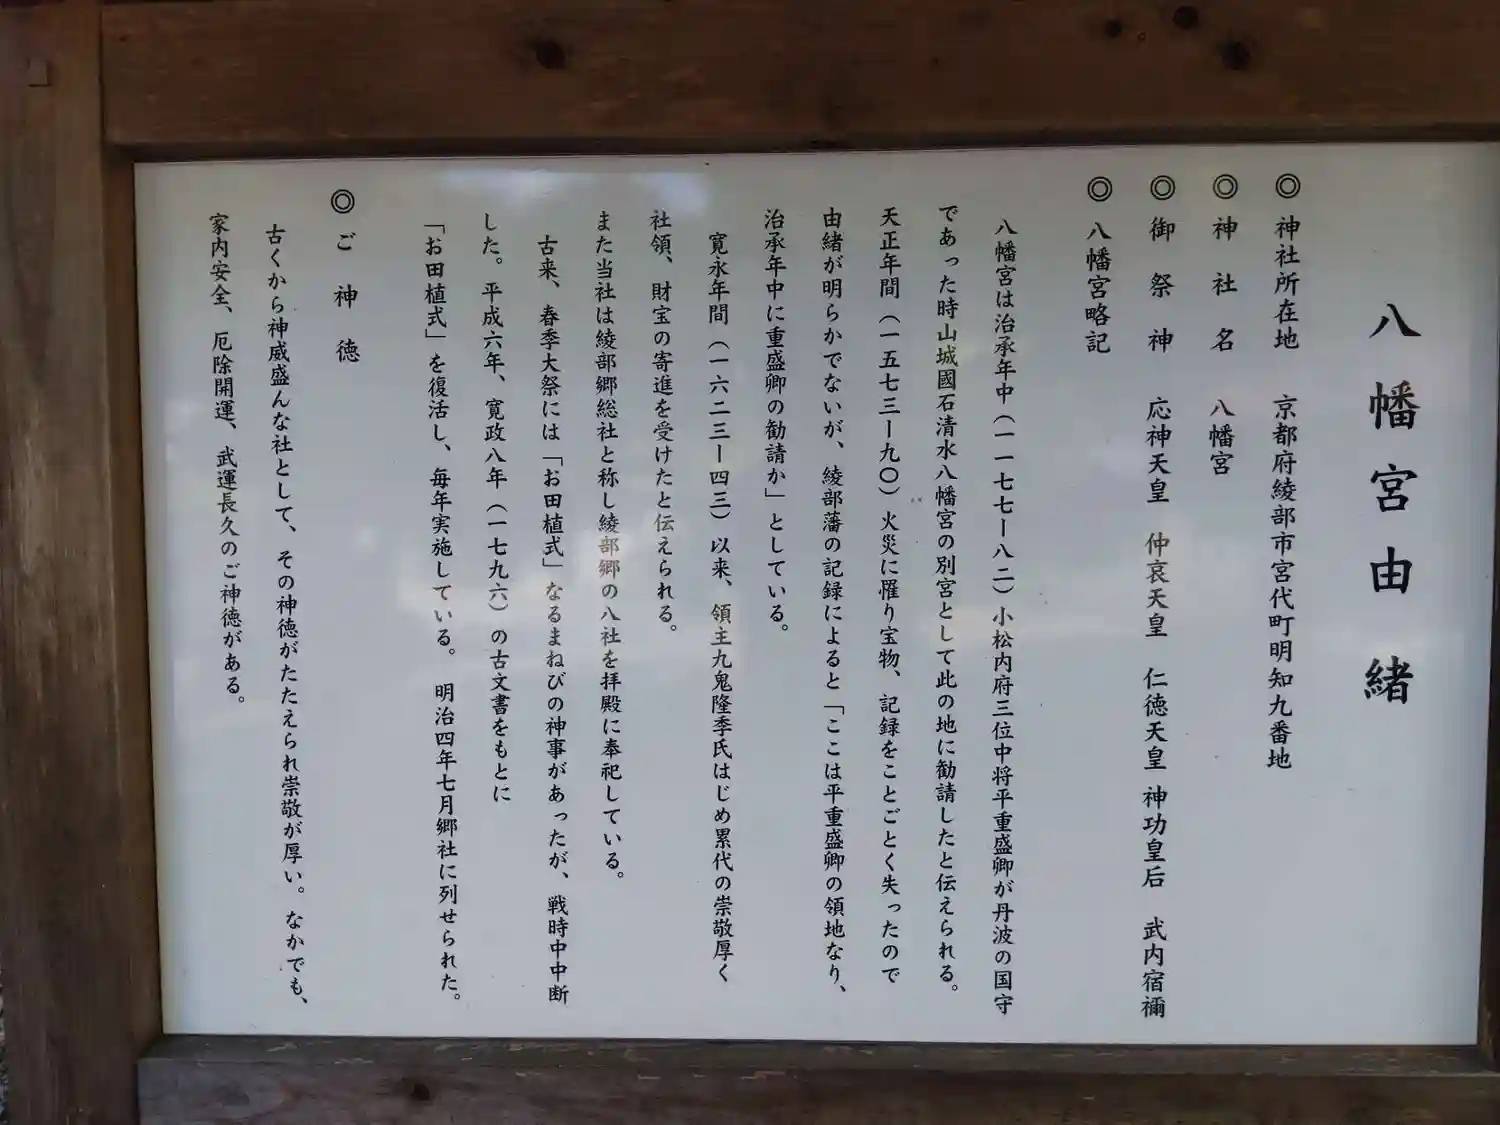 八幡宮由緒
◎神社所在地　京都府綾部市宮代町明知九番地
◎神社名　八幡宮
◎御祭神　応神天皇　仲哀天皇　仁徳天皇　神功皇后　武内宿禰
◎八幡宮略記
八幡宮は治承年中（一一七七ー八二）小松内府三位中将平重盛卿が丹波の国守
であった時山城國石清水八幡宮の別宮として此の地に勧請したと伝えられる。
天正年間（一五七三ー九〇）火災に罹り宝物、記録をことごとく失ったので
由緒が明らかでないが、綾部藩の記録によると「ここは平重盛卿の領地なり、
治承年中に重盛卿の勧請か」としている。
寛永年間（一六二三ー四三）以来、領主九鬼隆季氏はじめ累代の崇敬厚く
社領、財宝の寄進を受けたと伝えられる。
また当社は綾部郷総社と称し綾部郷の八社を拝殿に奉祀している。
古来、春季大祭には「お田植式」なるまねびの神事があったが、戦時中中断
した。平成六年、寛政八年（一七九六）の古文書をもとに
「お田植式」を復活し、毎年実施している。明治四年七月郷社に列せられた。
◎ご神徳
古くから神威盛んな社として、その神徳がたたえられ崇敬が厚い。なかでも、
家内安全、厄除開運、武運長久のご神徳がある。